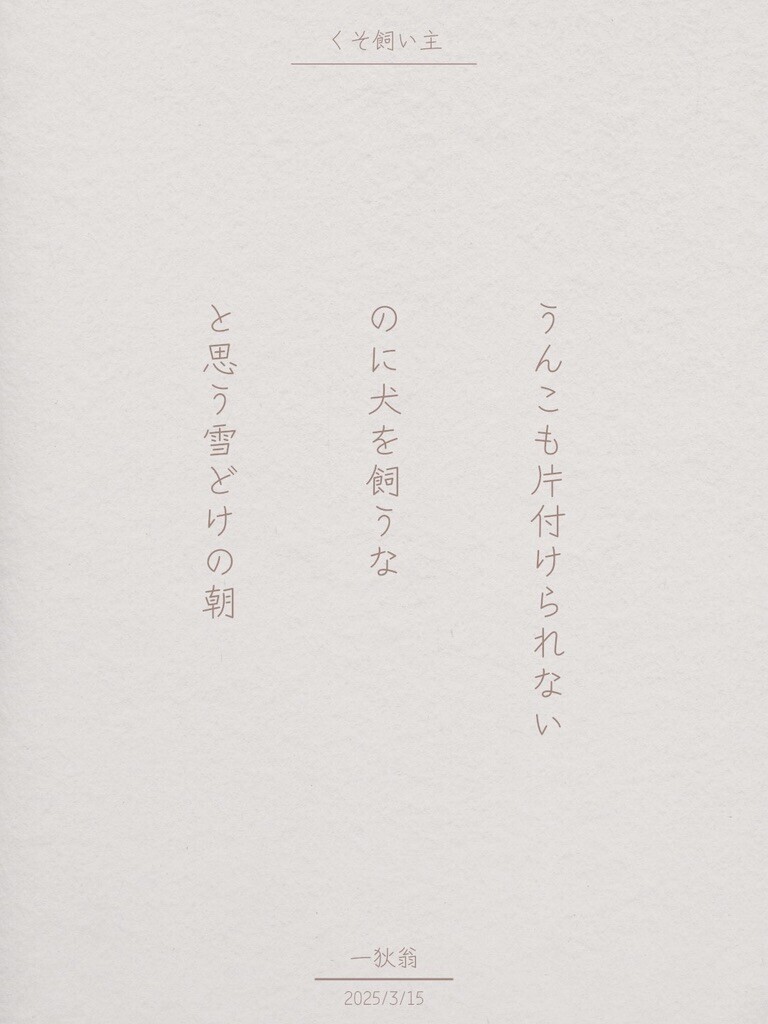 くそ飼い主
うんこも片付けられない
のに犬を飼うな
と思う雪どけの朝
一狄翁
2025/3/15